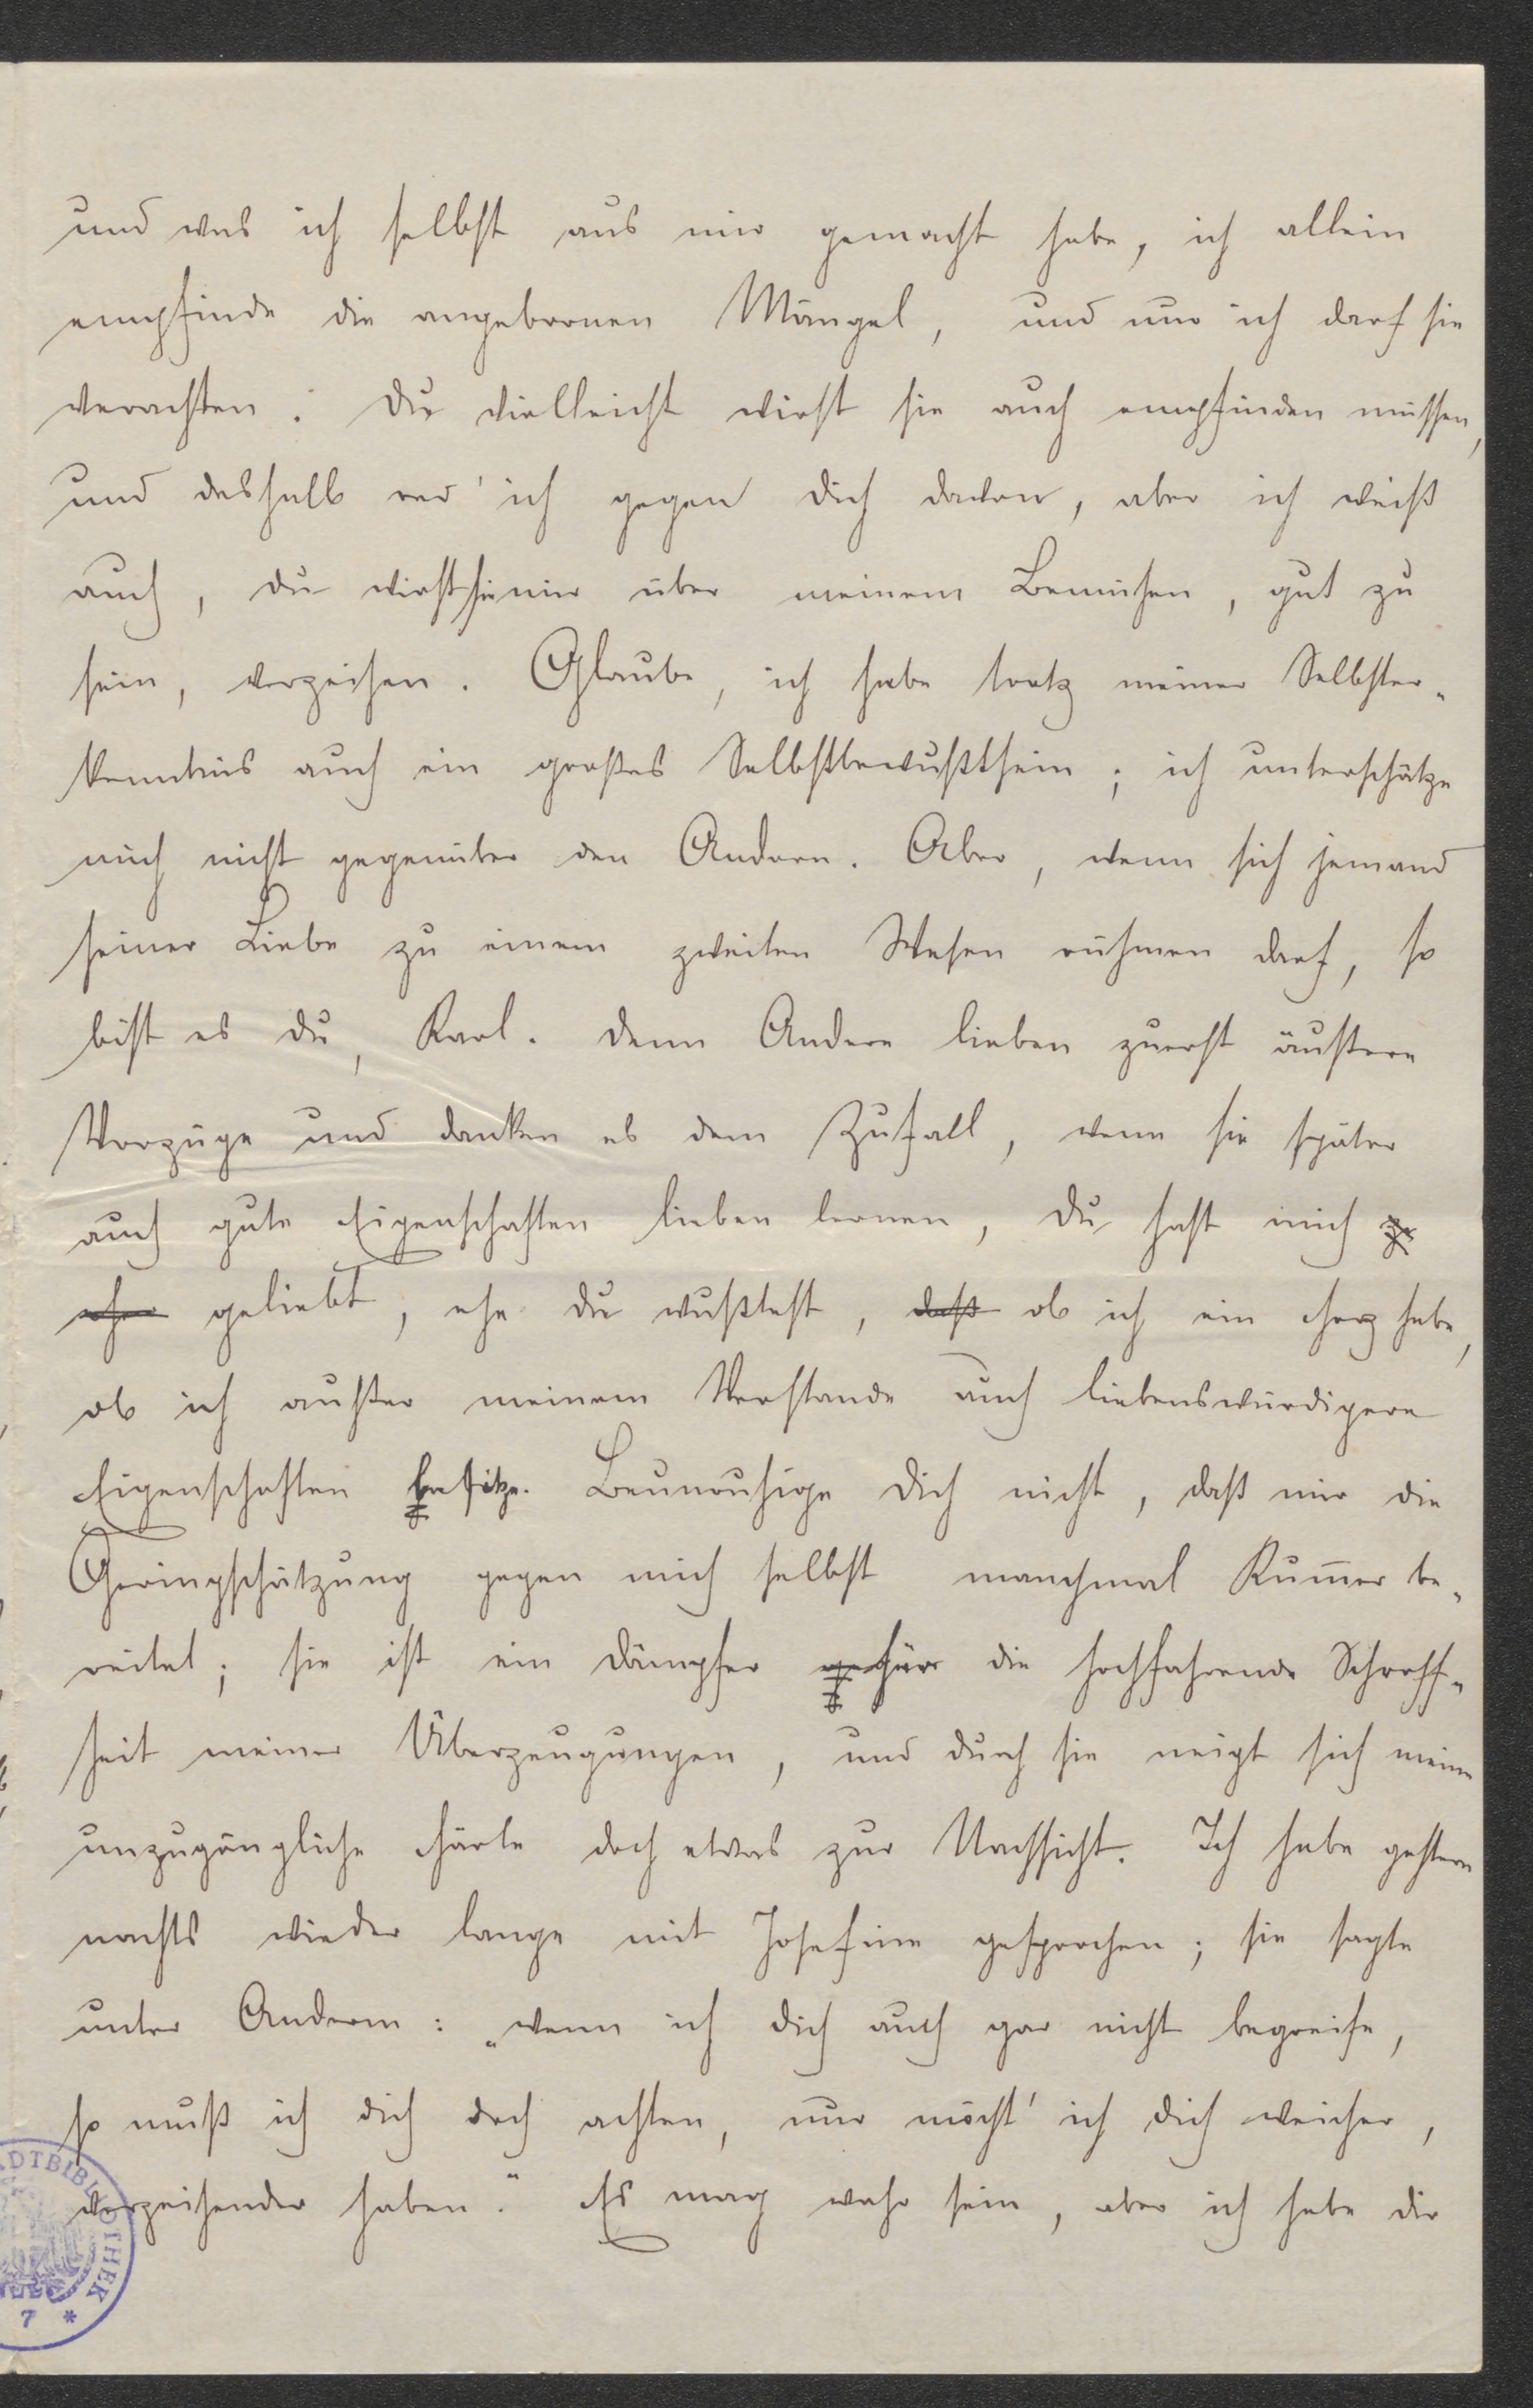 und was ich selbst aus mir gemacht habe, ich allein
empfinde die angebornen Mängel, und nur ich darf sie
verachten. Du vielleicht wirst sie auch empfinden müssen,
und deshalb red' ich gegen Dich davon, aber ich weiß
auch, Du wirst sie mir über meinem Bemühen, gut zu
sein, verzeihen. Glaube, ich habe trotz meiner Selbster-
kenntnis auch ein großes Selbstbewußtsein; ich unterschätze
mich nicht gegenüber den Andern. Aber, wenn sich jemand
seiner Liebe zu einem zweiten Wesen rühmen darf, so
bist es Du, Karl. Denn Andere lieben zuerst äußere
Vorzüge und danken es dem Zufall, wenn sie später
auch gute Eigenschaften lieben lernen, Du hast mich
geliebt, ehe Du wußtest, daß ob ich ein Herz habe,
ob ich außer meinem Verstande auch liebenswürdigere
Eigenschaften besitze. Beunruhige Dich nicht, daß mir die
Geringschätzung gegen mich selbst manchmal Kummer be-
reitet; sie ist ein Dämpfer für die hochfahrende Schroff-
heit meiner Überzeugungen, und durch sie neigt sich meine
unzugängliche Härte doch etwas zur Nachsicht. Ich habe gestern
nachts wieder lange mit Josefine gesprochen; sie sagte
unter Anderm: „wenn ich Dich auch gar nicht begreife,
so muß ich Dich doch achten, nur möcht' ich Dich weicher,
verzeihender haben.“ Es mag wahr sein, aber ich habe Dir
ADTBIBLIOTHEK
7 *